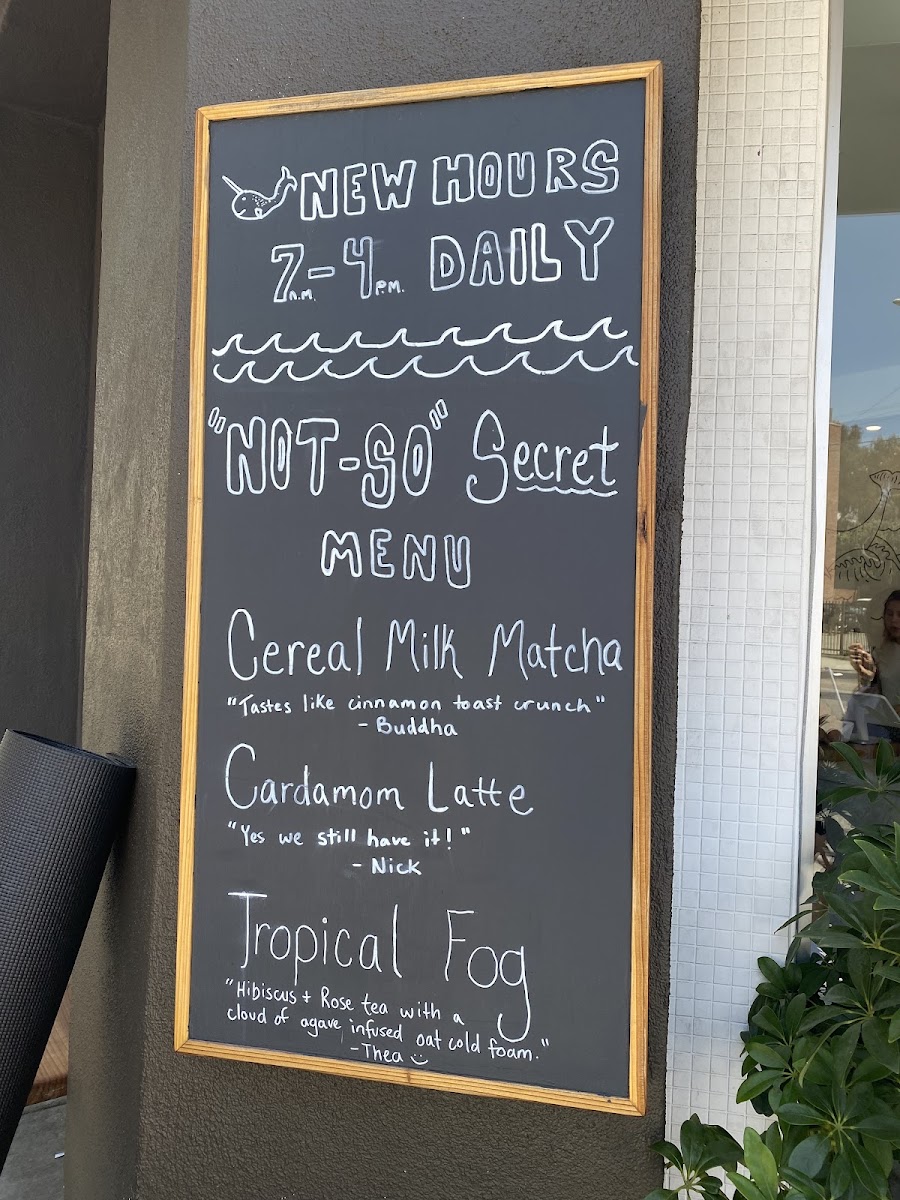 NEW HOURS
7A.M. - 4P.M. DAILY
"NOT-SO" Secret
MENU
Cereal Milk Matcha
"Tastes like cinnamon toast crunch"
- Buddha
Cardamom Latte
"Yes we still have it!"
- Nick
Tropical Fog
"Hibiscus + Rose tea with a
cloud of agave infused oat cold foam."
-Thea